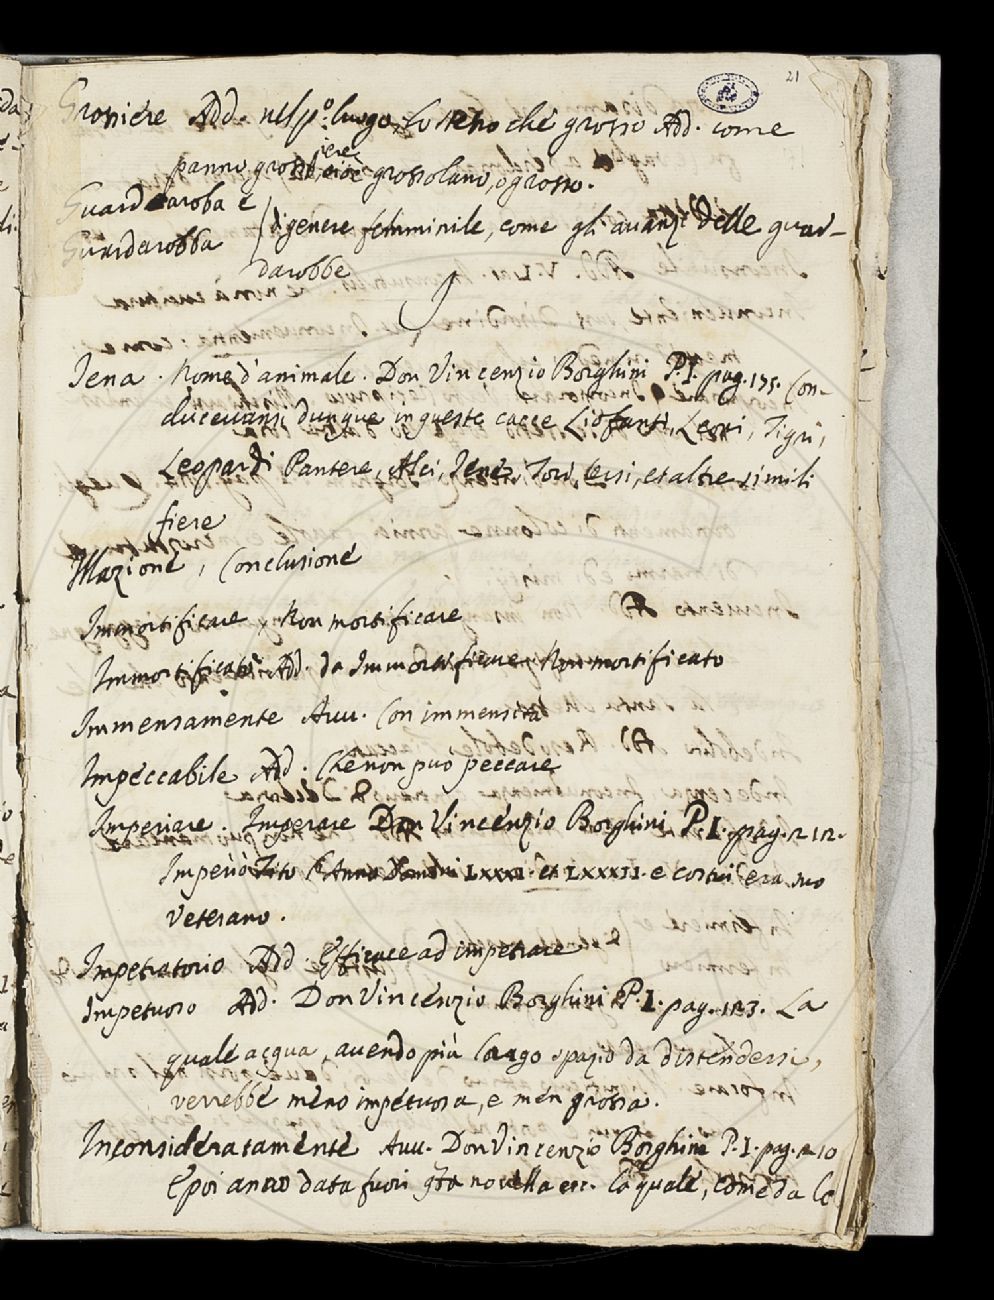 21
Grossiere Add. nel pº. luogo, lo stesso che grosso Add. come
panno grossiere, cioè grossolano, o grosso.
Guardaroba e
Guardarobba } di genere femminile, come gli avanzi delle guar-
darobbe
Iena. Nome d'animale. Don Vincenzio Borghini P.I. pag. 175. Con-
ducevansi dunque in queste cacce Liofanti, Leoni, Tigri,
Leopardi Pantere, Alci, Iene, Tori, Orsi, et altre simili
fiere
Illazione, Conclusione
Immortificare, Non mortificare
Immortificato Add. da Immortificare, Non mortificato
Immensamente Avv. Con immensità
Impeccabile Add. Che non può peccare
Imperiare. Imperare Don Vincenzio Borghini P.I. pag. 212.
Imperiò Tito l'Anno LXXXI. et LXXXII. e costui era suo
veterano.
Impetratorio Add. Efficace ad impetrare
Impetuoso Ad. Don Vincenzio Borghini P.I. pag. 123. La
quale acqua, avendo più largo spazio da distendersi,
verrebbe meno impetuosa, e men grossa.
Inconsideratamente Avv. Don Vincenzio Borghini P.I. pag. 210
E poi anco data fuori qta novella etc. la quale, come da le